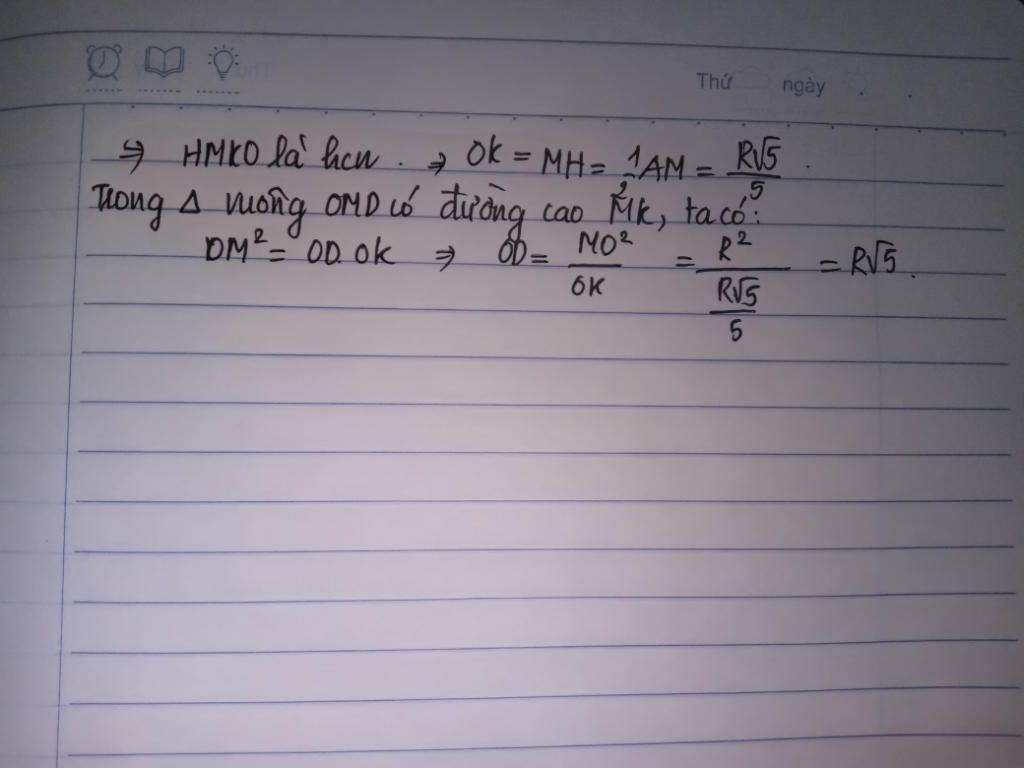 Thứ ngày
⇒ HMKO là hcn. ⇒ OK = MH = 1/2 AM = R√5/5.
Trong Δ vuông OMD có đường cao MK, ta có:
OM² = OD.OK ⇒ OD = MO²/OK = R²/(R√5/5) = R√5.